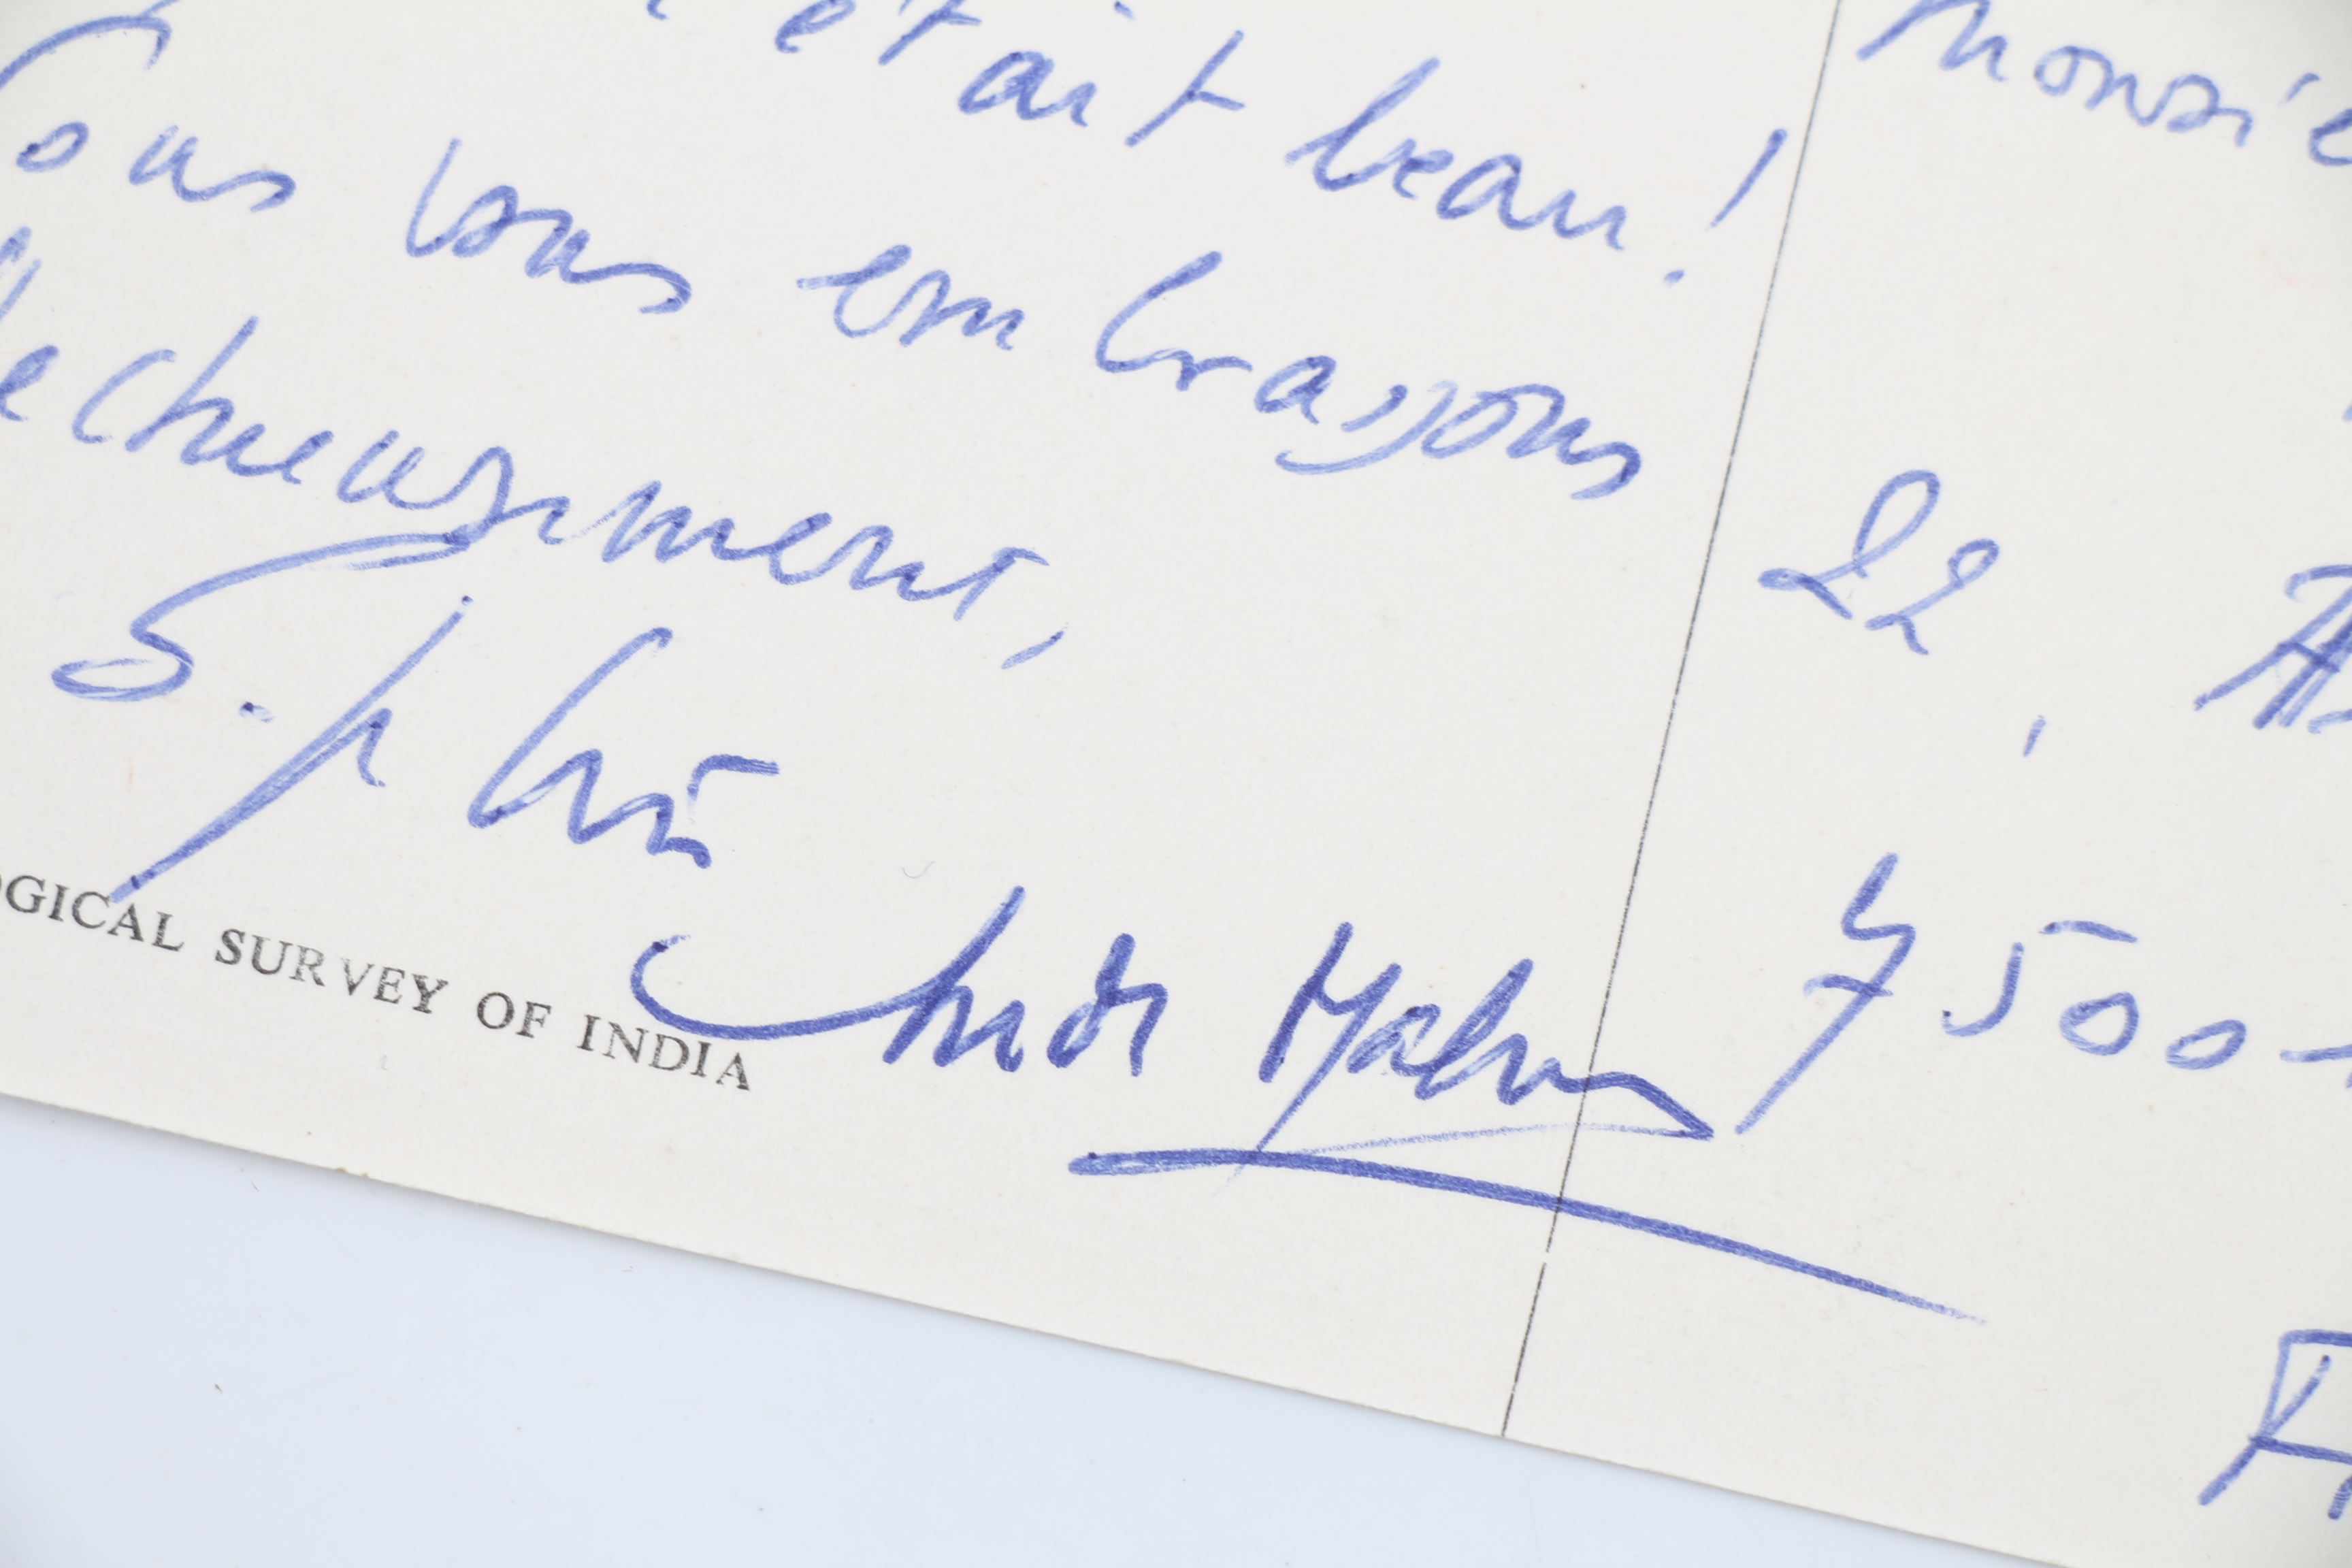 était beau!
vous embrassons
affectueusement,
Sophie
André Malraux
OGICAL SURVEY OF INDIA
Monsie
22, A
7500
F